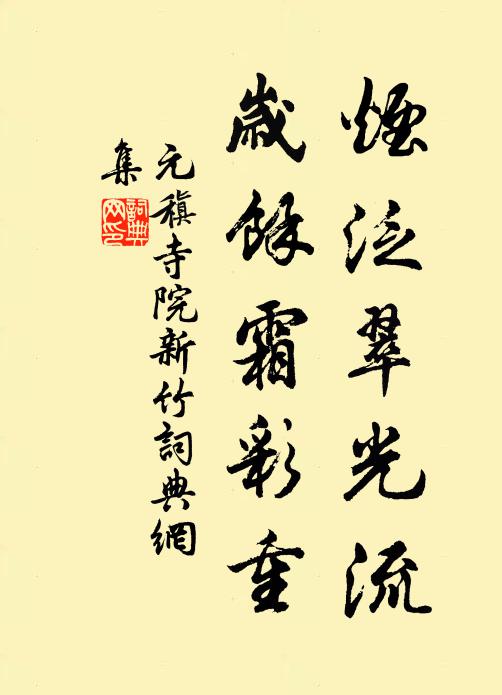 煙泛翠光流
歲餘霜彩重
元稹寺院新竹詞典網
集
詞典網印